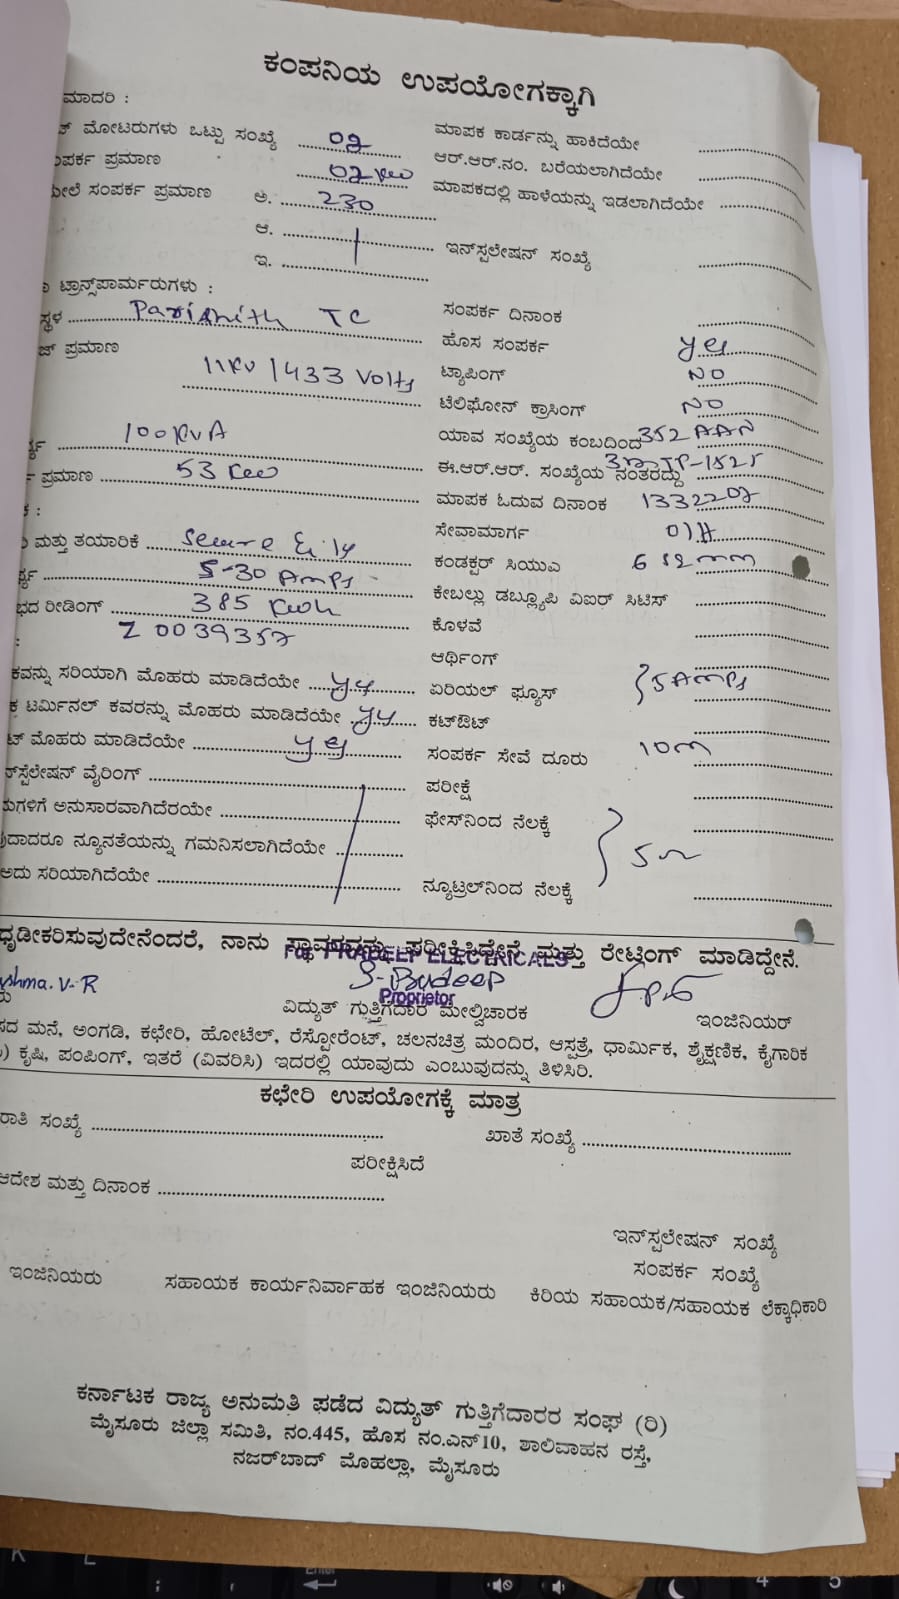 ಕಂಪನಿಯ ಉಪಯೋಗಕ್ಕಾಗಿ
ಮಾದರಿ :
ಮೋಟರುಗಳು ಒಟ್ಟು ಸಂಖ್ಯೆ 02 ಮಾಪಕ ಕಾರ್ಡನ್ನು ಹಾಕಿದೆಯೇ
ಪ್ರಮಾಣ 02 kw ಆರ್.ಆರ್.ನಂ. ಬರೆಯಲಾಗಿದೆಯೇ
ಸಂಪರ್ಕ ಪ್ರಮಾಣ ಅ. 230 ಮಾಪಕದಲ್ಲಿ ಹಾಳೆಯನ್ನು ಇಡಲಾಗಿದೆಯೇ
ಆ. ಇನ್‌ಸ್ಟಲೇಷನ್ ಸಂಖ್ಯೆ
ಇ.
ಟ್ರಾನ್ಸ್‌ಪಾರ್ಮರುಗಳು :
ಸ್ಥಳ Parishith TC ಸಂಪರ್ಕ ದಿನಾಂಕ
ಪ್ರಮಾಣ ಹೊಸ ಸಂಪರ್ಕ yes
11KV / 433 Volts ಟ್ಯಾಪಿಂಗ್ NO
ಟೆಲಿಫೋನ್ ಕ್ರಾಸಿಂಗ್ NO
100 KVA ಯಾವ ಸಂಖ್ಯೆಯ ಕಂಬದಿಂದ 352 AAN
ಪ್ರಮಾಣ 53 kw ಈ.ಆರ್.ಆರ್. ಸಂಖ್ಯೆಯ ನಂತರದ್ದು
ಮಾಪಕ ಓದುವ ದಿನಾಂಕ 1332202
ಮತ್ತು ತಯಾರಿಕೆ Secure ಸೇವಾಮಾರ್ಗ
5-30 Amps ಕಂಡಕ್ಟರ್ ಸಿಯುಎ 6 sqmm
ರೀಡಿಂಗ್ 385 kwh ಕೇಬಲ್ಲು ಡಬ್ಲ್ಯೂಪಿ ವಿಐರ್ ಸಿಟಿಸ್
: Z 0039357 ಕೊಳವೆ
ಆರ್ಥಿಂಗ್
ಸರಿಯಾಗಿ ಮೊಹರು ಮಾಡಿದೆಯೇ yes ಏರಿಯಲ್ ಫ್ಯೂಸ್ 5 Amps
ಟರ್ಮಿನಲ್ ಕವರನ್ನು ಮೊಹರು ಮಾಡಿದೆಯೇ yes ಕಟ್‌ಔಟ್
ಮೊಹರು ಮಾಡಿದೆಯೇ yes ಸಂಪರ್ಕ ಸೇವೆ ದೂರು 10m
ವೈರಿಂಗ್ ಪರೀಕ್ಷೆ
ಅನುಸಾರವಾಗಿದೆರಯೇ ಫೇಸ್‌ನಿಂದ ನೆಲಕ್ಕೆ
ನ್ಯೂನತೆಯನ್ನು ಗಮನಿಸಲಾಗಿದೆಯೇ
ಅದು ಸರಿಯಾಗಿದೆಯೇ ನ್ಯೂಟ್ರಲ್‌ನಿಂದ ನೆಲಕ್ಕೆ
ನಾನು ಸ್ಥಾವರವನ್ನು ಪರೀಕ್ಷಿಸಿದ್ದೇನೆ ಮತ್ತು ರೇಟಿಂಗ್ ಮಾಡಿದ್ದೇನೆ.
For PRADEEP ELECTRICALS
V.R S. Pradeep
Proprietor
ವಿದ್ಯುತ್ ಗುತ್ತಿಗೆದಾರ ಮೇಲ್ವಿಚಾರಕ ಇಂಜಿನಿಯರ್
ಮನೆ, ಅಂಗಡಿ, ಕಛೇರಿ, ಹೋಟೆಲ್, ರೆಸ್ಟೋರೆಂಟ್, ಚಲನಚಿತ್ರ ಮಂದಿರ, ಆಸ್ಪತ್ರೆ, ಧಾರ್ಮಿಕ, ಶೈಕ್ಷಣಿಕ, ಕೈಗಾರಿಕ
) ಕೃಷಿ, ಪಂಪಿಂಗ್, ಇತರೆ (ವಿವರಿಸಿ) ಇದರಲ್ಲಿ ಯಾವುದು ಎಂಬುವುದನ್ನು ತಿಳಿಸಿರಿ.
ಕಛೇರಿ ಉಪಯೋಗಕ್ಕೆ ಮಾತ್ರ
ಸಂಖ್ಯೆ ಖಾತೆ ಸಂಖ್ಯೆ
ಪರೀಕ್ಷಿಸಿದೆ
ಆದೇಶ ಮತ್ತು ದಿನಾಂಕ
ಇನ್‌ಸ್ಪಲೇಷನ್ ಸಂಖ್ಯೆ
ಸಂಪರ್ಕ ಸಂಖ್ಯೆ
ಇಂಜಿನಿಯರು ಸಹಾಯಕ ಕಾರ್ಯನಿರ್ವಾಹಕ ಇಂಜಿನಿಯರು ಕಿರಿಯ ಸಹಾಯಕ/ಸಹಾಯಕ ಲೆಕ್ಕಾಧಿಕಾರಿ
ಕರ್ನಾಟಕ ರಾಜ್ಯ ಅನುಮತಿ ಪಡೆದ ವಿದ್ಯುತ್ ಗುತ್ತಿಗೆದಾರರ ಸಂಘ (ರಿ)
ಮೈಸೂರು ಜಿಲ್ಲಾ ಸಮಿತಿ, ನಂ.445, ಹೊಸ ನಂ.ಎನ್10, ಶಾಲಿವಾಹನ ರಸ್ತೆ,
ನಜರ್‌ಬಾದ್ ಮೊಹಲ್ಲಾ, ಮೈಸೂರು